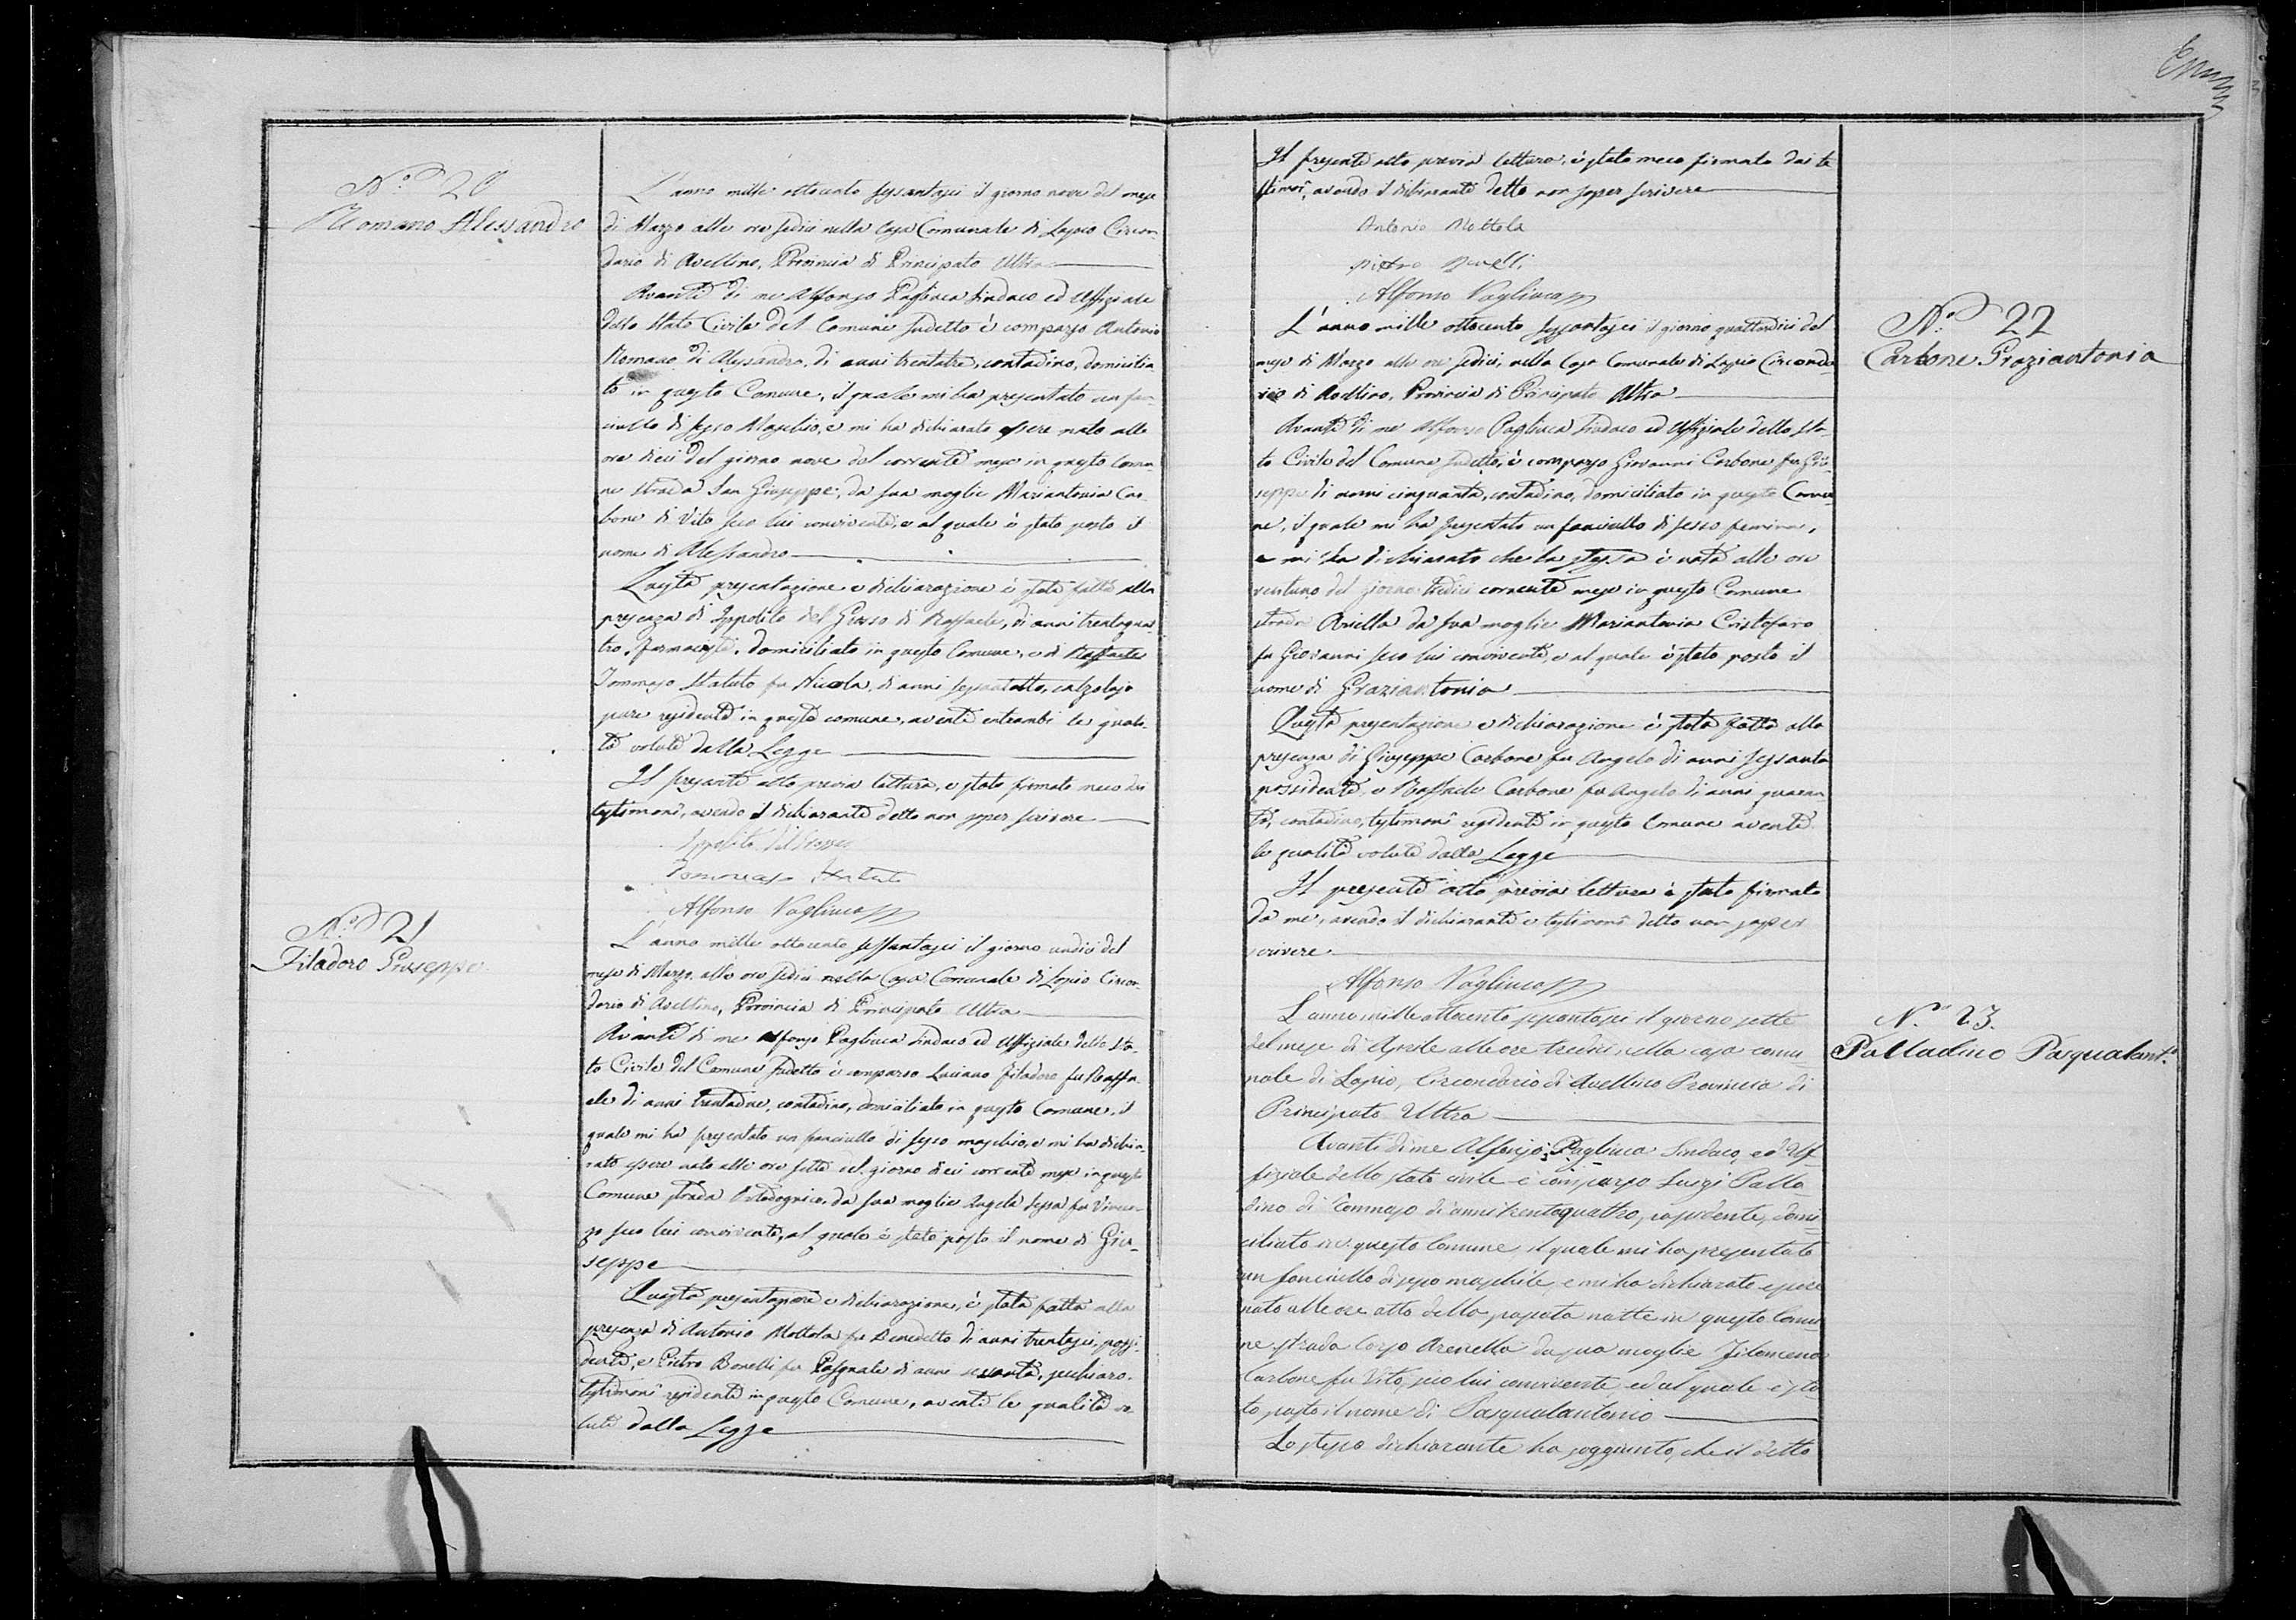 N.° 20
Romano Alessandro
L'anno mille ottocento sessantasei il giorno nove del mese
di Marzo alle ore sedici nella Casa Comunale di Lapio Circon-
dario di Avellino, Provincia di Principato Ultra
Avanti di me Alfonso Pagliuca Sindaco ed Uffiziale
dello Stato Civile del Comune sudetto è comparso Antonio
Romano di Alessandro, di anni trentatre, contadino, domicilia
to in questo Comune, il quale mi ha presentato un fan-
ciullo di sesso Maschio, e mi ha dichiarato essere nato alle
ore dieci del giorno nove del corrente mese in questo Comu-
ne strada San Giuseppe, da sua moglie Mariantonia Car-
bone di Vito seco lui convivente, e al quale è stato posto il
nome di Alessandro
Questa presentazione e dichiarazione è stata fatta alla
presenza di Ippolito del Grosso di Raffaele, di anni trentaquat
tro, farmacista, domiciliato in questo Comune, e di Raffaele
Tommaso Statuto fu Nicola, di anni sessantotto, calzolajo
pure residente in questo comune, aventi entrambi le quali-
tà volute dalla Legge
Il presente atto previa lettura, è stato firmato meco dai
testimoni, avendo il dichiarante detto non saper scrivere
Ippolito del Grosso
Tommaso Statuto
Alfonso Pagliuca
N.° 21
Filadoro Giuseppe
L'anno mille ottocento sessantasei il giorno undici del
mese di Marzo, alle ore sedici nella Casa Comunale di Lapio Circon-
dario di Avellino, Provincia di Principato Ultra
Avanti di me Alfonso Pagliuca Sindaco ed Uffiziale dello Sta-
to Civile del Comune sudetto è comparso Luciano Filadoro fu Raffa-
ele di anni trentadue, contadino, domiciliato in questo Comune, il
quale mi ha presentato un fanciullo di sesso maschio, e mi ha dichia-
rato essere nato alle ore sette del giorno dieci corrente mese in questo
Comune strada da sua moglie Angela Sessa fu Vincen-
zo seco lui convivente, al quale è stato posto il nome di Giu-
seppe
Questa presentazione e dichiarazione, è stata fatta alla
presenza di Antonio Mottola fu Benedetto di anni trentasei, possi-
dente, e Pietro Bonelli fu Pasquale di anni
testimoni residenti in questo Comune, aventi le qualità vo
lute dalla Legge
Il presente atto previa lettura, è stato meco firmato dai te
stimoni, avendo il dichiarante detto non saper scrivere
Antonio Mottola
Pietro Bonelli
Alfonso Pagliuca
N.° 22
Carbone Graziantonia
L'anno mille ottocento sessantasei il giorno quattordici del
mese di Marzo alle ore sedici, nella Casa Comunale di Lapio Circonda-
rio di Avellino, Provincia di Principato Ultra
Avanti di me Alfonso Pagliuca Sindaco ed Uffiziale dello Sta-
to Civile del Comune sudetto, è comparso Giovanni Carbone fu Giu-
seppe di anni cinquanta, contadino, domiciliato in questo Comu-
ne, il quale mi ha presentato un fanciullo di sesso feminino,
e mi ha dichiarato che la stessa è nata alle ore
ventuno del giorno tredici corrente mese in questo Comune
strada Ariella da sua moglie Mariantonia Cristofaro
fu Giovanni seco lui convivente, e al quale è stato posto il
nome di Graziantonia
Questa presentazione e dichiarazione è stata fatta alla
presenza di Giuseppe Carbone fu Angelo di anni sessanta
possidente, e Raffaele Carbone fu Angelo di anni quaran-
ta, contadino, testimoni residenti in questo Comune aventi
le qualità volute dalla Legge
Il presente atto previa lettura è stato firmato
da me, avendo il dichiarante e testimoni detto non saper
scrivere
Alfonso Pagliuca
N.° 23.
Palladino Pasqualant.°
L'anno mille ottocento sessantasei il giorno sette
del mese di Aprile alle ore tredici nella casa comu
nale di Lapio, Circondario di Avellino Provincia di
Principato Ultra
Avanti di me Alfonso Pagliuca Sindaco, ed Uf-
fiziale dello stato civile è comparso Luigi Palla-
dino di Tommaso di anni trentaquattro, possidente, domi-
ciliato in questo Comune, il quale mi ha presentato
un fanciullo di sesso maschile, e mi ha dichiarato essere
nato alle ore otto della passata notte in questo Comu-
ne strada Corso Arenella da sua moglie Filomena
Carbone fu Vito, seco lui convivente, ed al quale è sta-
to posto il nome di Pasqualantonio
Lo stesso dichiarante ha soggiunto, che il detto